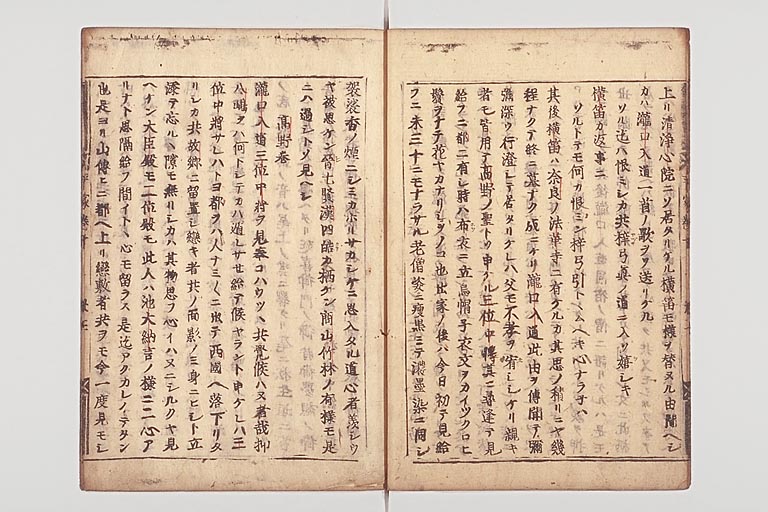 上リ清浄心院ニソ居タリケル横笛モ様ヲ替ヌル由聞ヘシ
カハ瀧口入道一首ノ歌ヲソ送リケル
ソルト迄ハ恨ミシカ共梓弓真ノ道ニ入ソ嬉シキ
横笛カ返事ニ
ソルトテモ何カ恨ミン梓弓引トヽムヘキ心ナラネハ
其後横笛ハ奈良ノ法華寺ニ有ケルカ其思ノ積リニヤ幾
程ナクテ終ニ墓ナク成ニケリ瀧口入道此由ヲ傳聞テ彌
深ク行澄シテ居タリケレハ父モ不孝ヲ宥シケリ親キ
者モ皆用テ高野ノ聖トソ申ケル三位中将其ニ尋逢テ見
給フニ都ニ有シ時ハ布衣ニ立烏帽子衣文ヲカイツクロヒ
鬢ヲナテ花ヤカナリシヲノコ也出家ノ後ハ今日初テ見給
フニ未三十ニモナラサル老僧姿ニ痩黒ミテ濃墨染ニ同シ
袈裟香ノ煙ニシミカホリサカシケニ思入タル道心者羨シク
ヤ被思ケン晉七賢漢四皓カ栖ケン商山竹林ノ有様モ是
ニハ過シトソ見ヘシ
高野巻
瀧口入道三位中将ヲ見奉コハウツヽ共覺候ハヌ者哉抑
八嶋ヲハ何トシテカハ遁レサセ給テ候ヤラント申ケレハ三
位中将サレハトヨ都ヲハ人ナミ〱ニ出テ西國ヘ落下リタ
リシカ共故郷ニ留置シ戀キ者共ノ面影ノミ身ニヒシト立
添テ忘ルヽ隙モ無リシカハ其物思フ心イハヌニシルクヤ見
ヘケン大臣殿モ二位殿モ此人ハ池大納言ノ様ニ二心ア
リナト思隔給フ間イトヽ心モ留ラス是迄アクカレノミテタン
也是ヨリ山傳ヒニ都ヘ上リ戀敷者共ヲモ今一度見モシ